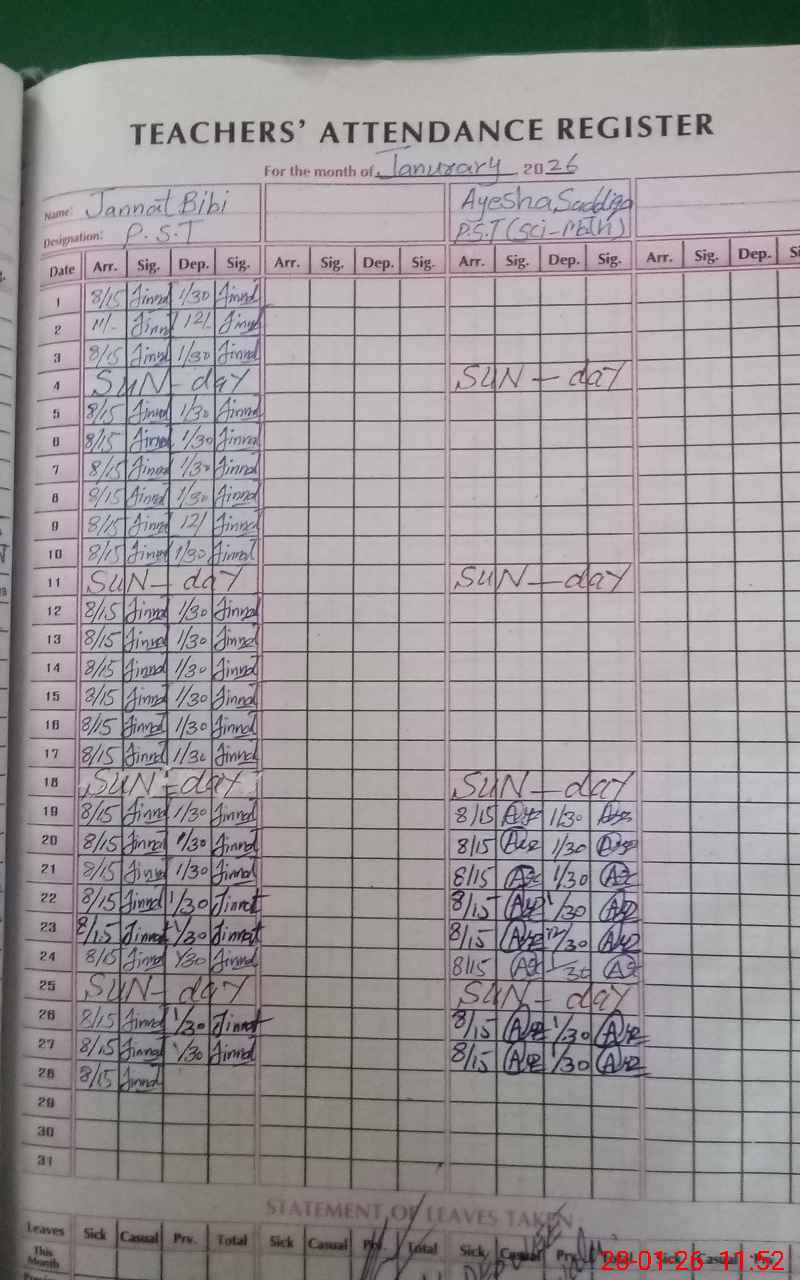 TEACHERS' ATTENDANCE REGISTER
For the month of Janurary 2026
Name: Jannat Bibi Ayesha Saddiqa
Designation: P.S.T P.S.T (Sci-Math)
Date Arr. Sig. Dep. Sig. Arr. Sig. Dep. Sig. Arr. Sig. Dep. Sig. Arr. Sig. Dep.
1 8/15 Jinnd 1/30 Jinnd
2 11/- Jinnd 12/- Jinnd
3 8/15 Jinnd 1/30 Jinnd
4 SUN-day SUN-day
5 8/15 Jinnd 1/30 Jinnd
6 8/15 Jinnd 1/30 Jinnd
7 8/15 Jinnd 1/30 Jinnd
8 8/15 Jinnd 1/30 Jinnd
9 8/15 Jinnd 12/ Jinnd
10 8/15 Jinnd 1/30 Jinnd
11 SUN-day SUN-day
12 8/15 Jinnd 1/30 Jinnd
13 8/15 Jinnd 1/30 Jinnd
14 8/15 Jinnd 1/30 Jinnd
15 8/15 Jinnd 1/30 Jinnd
16 8/15 Jinnd 1/30 Jinnd
17 8/15 Jinnd 1/30 Jinnd
18 SUN-day SUN-day
19 8/15 Jinnd 1/30 Jinnd 8/15 1/30
20 8/15 Jinnd 1/30 Jinnd 8/15 1/30
21 8/15 Jinnd 1/30 Jinnd 8/15 1/30
22 8/15 Jinnd 1/30 Jinnat 8/15 1/30
23 8/15 Jinnat 1/30 Jinnat 8/15 /30
24 8/15 Jinnd 1/30 Jinnd 8/15 1/30
25 SUN-day SUN-day
26 8/15 Jinnd 1/30 Jinnat 8/15 1/30
27 8/15 Jinnd 1/30 Jinnd 8/15 1/30
28 8/15 Jinnd
29
30
31
STATEMENT OF LEAVES TAKEN
Leaves Sick Casual Prv. Total Sick Casual Prv. Total Sick Casual Prv. Total Sick Casual Prv.
This Month
28-01-26 11:52